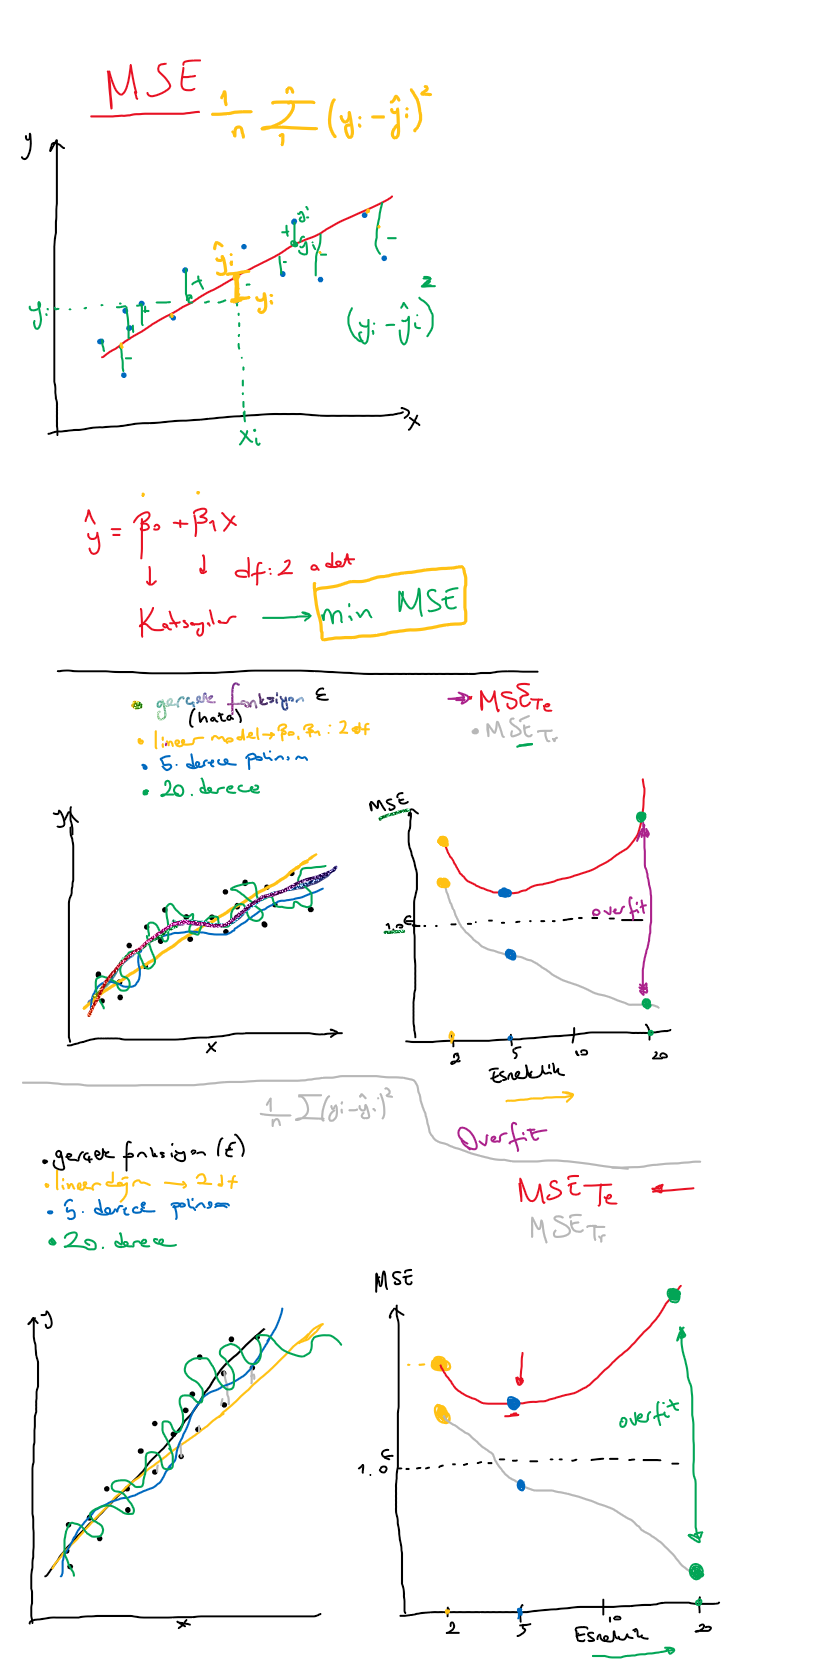 MSE 1/n Σ (yᵢ - ŷᵢ)²
n
1
y
ŷᵢ
yᵢ
+
yᵢ
ŷᵢ
+
-
yᵢ
(yᵢ - ŷᵢ)²
x
xᵢ
ŷ = β₀ + β₁x
df: 2 adet
Katsayılar → min MSE
gerçek fonksiyon ε
(hata)
→ MSE_Te
• MSE_Tr
• lineer model → β₀, β₁ : 2 df
• 5. derece polinom
• 20. derece
y
MSE
1.0 ε
overfit
x
2 5 10 20
Esneklik
→
1/n Σ(yᵢ - ŷᵢ)²
Overfit
• gerçek fonksiyon (ε)
• lineer doğru → 2 df
• 5. derece polinom
• 20. derece
MSE_Te ←
MSE_Tr
MSE
y
overfit
ε
1.0
x
2 5 10 20
Esneklik
→